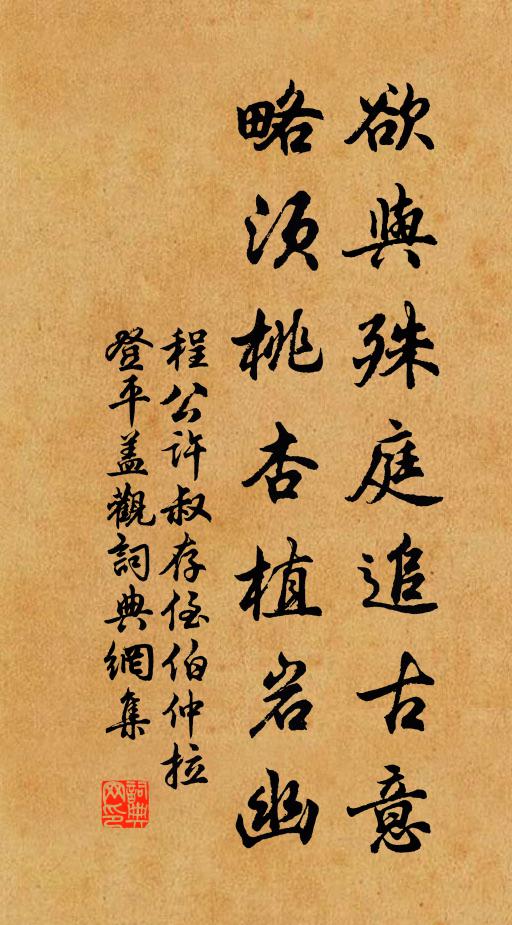 欲與殊庭追古意
略須桃杏植岩幽
程公許叔存侄伯仲拉
登平蓋觀詞典網集
詞典網印